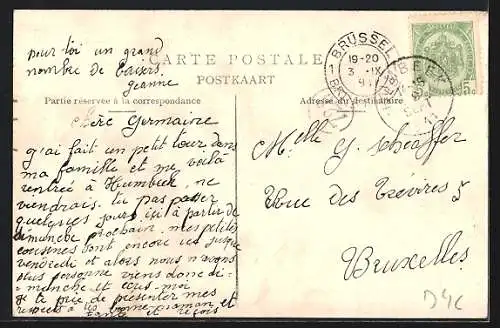 pour toi un grand
nombre de baisers
Jeanne
CARTE POSTALE
POSTKAART
Partie réservée à la correspondance
Adresse du destinataire
BRUSSEL
19-20
3 IX
1
BEEK
5c
Chère Germaine
j'ai fait un petit tour dans
ma famille et me voilà
rentrée à Humbeek, ne
viendrais tu pas passer
quelques jours ici à partir de
dimanche prochain. mes petites
cousines sont encore ici jusque
vendredi et alors nous n'avons
plus personne viens donc di-
manche et écris-moi
je te prie de présenter mes
respects à ta bonne maman et
tante et reçois
Melle G. Schaeffer
Rue des Trévires 5
Bruxelles
D4C